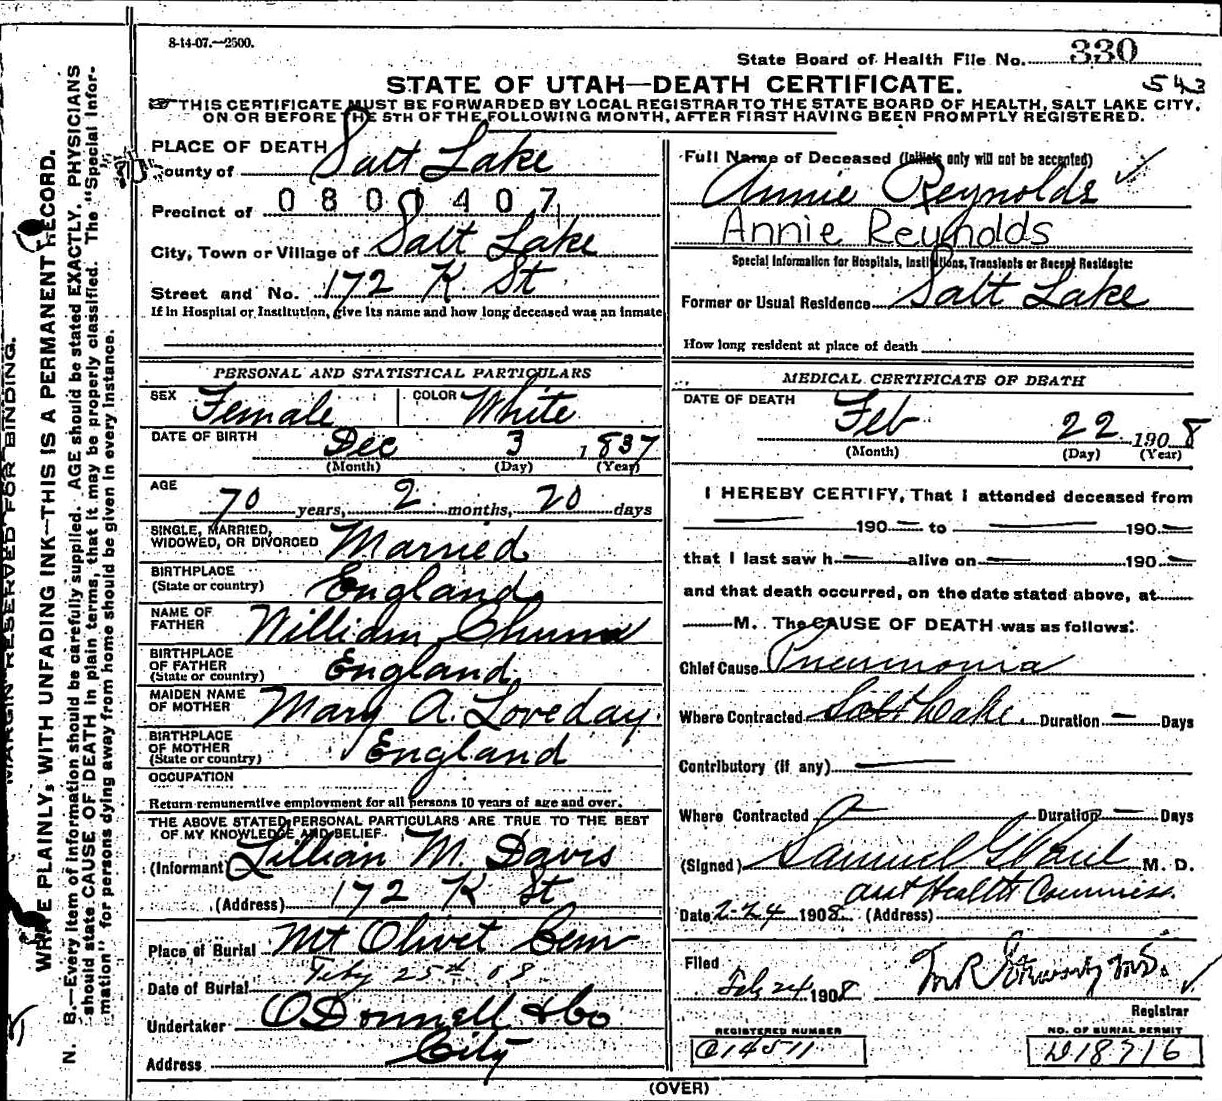 8-14-07.—2500.
State Board of Health File No. 330
543
STATE OF UTAH—DEATH CERTIFICATE.
THIS CERTIFICATE MUST BE FORWARDED BY LOCAL REGISTRAR TO THE STATE BOARD OF HEALTH, SALT LAKE CITY,
ON OR BEFORE THE 5TH OF THE FOLLOWING MONTH, AFTER FIRST HAVING BEEN PROMPTLY REGISTERED.
PLACE OF DEATH
County of Salt Lake
Precinct of 0801407
City, Town or Village of Salt Lake
Street and No. 172 K St
If in Hospital or Institution, give its name and how long deceased was an inmate
PERSONAL AND STATISTICAL PARTICULARS
SEX Female COLOR White
DATE OF BIRTH Dec 3 1837
(Month) (Day) (Year)
AGE 70 years, 2 months, 20 days
SINGLE, MARRIED,
WIDOWED, OR DIVORCED Married
BIRTHPLACE
(State or country) England
NAME OF
FATHER William
BIRTHPLACE
OF FATHER
(State or country) England
MAIDEN NAME
OF MOTHER Mary A. Loveday.
BIRTHPLACE
OF MOTHER
(State or country) England
OCCUPATION
Return remunerative employment for all persons 10 years of age and over.
THE ABOVE STATED PERSONAL PARTICULARS ARE TRUE TO THE BEST
OF MY KNOWLEDGE AND BELIEF.
(Informant) Lillian M. Davis
(Address) 172 K St
Place of Burial Mt Olivet Cem
Date of Burial Feby 25th 08
Undertaker O'Donnell & Co
Address City
Full Name of Deceased (Initials only will not be accepted)
Annie Reynolds
Annie Reynolds
Special Information for Hospitals, Institutions, Transients or Recent Residents:
Former or Usual Residence Salt Lake
How long resident at place of death
MEDICAL CERTIFICATE OF DEATH
DATE OF DEATH Feb 22 1908
(Month) (Day) (Year)
I HEREBY CERTIFY, That I attended deceased from
— 190— to — 190—
that I last saw h— alive on — 190—
and that death occurred, on the date stated above, at
—M. The CAUSE OF DEATH was as follows:
Chief Cause Pneumonia
Where Contracted Salt Lake. Duration — Days
Contributory (if any) —
Where Contracted Duration — Days
(Signed) Samuel G. Paul M. D.
asst Health Commis.
Date 2-24 1908 (Address)
Filed
Feb 24 1908
Registrar
REGISTERED NUMBER
NO. OF BURIAL PERMIT
O14511
D18716
(OVER)
MARGIN RESERVED FOR BINDING.
WRITE PLAINLY, WITH UNFADING INK—THIS IS A PERMANENT RECORD.
N. B.—Every item of information should be carefully supplied. AGE should be stated EXACTLY. PHYSICIANS
should state CAUSE OF DEATH in plain terms, that it may be properly classified. The "Special Infor-
mation" for persons dying away from home should be given in every instance.